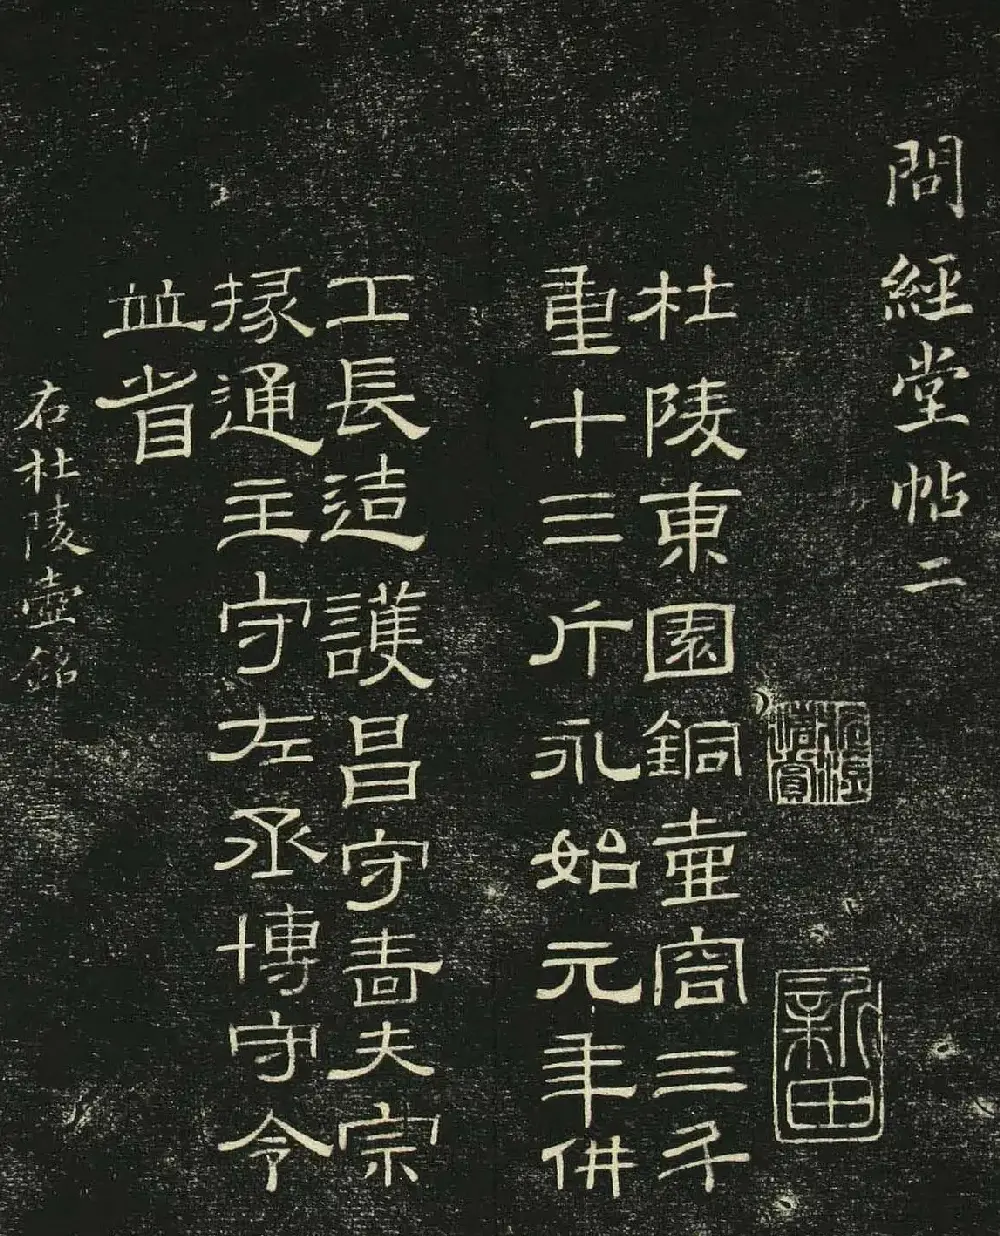 問經堂帖二
新田
杜陵東園銅壺容三斗
重十三斤永始元年供
工長造護昌守嗇夫宗
掾通主守左丞博守令
並省
右杜陵壺銘